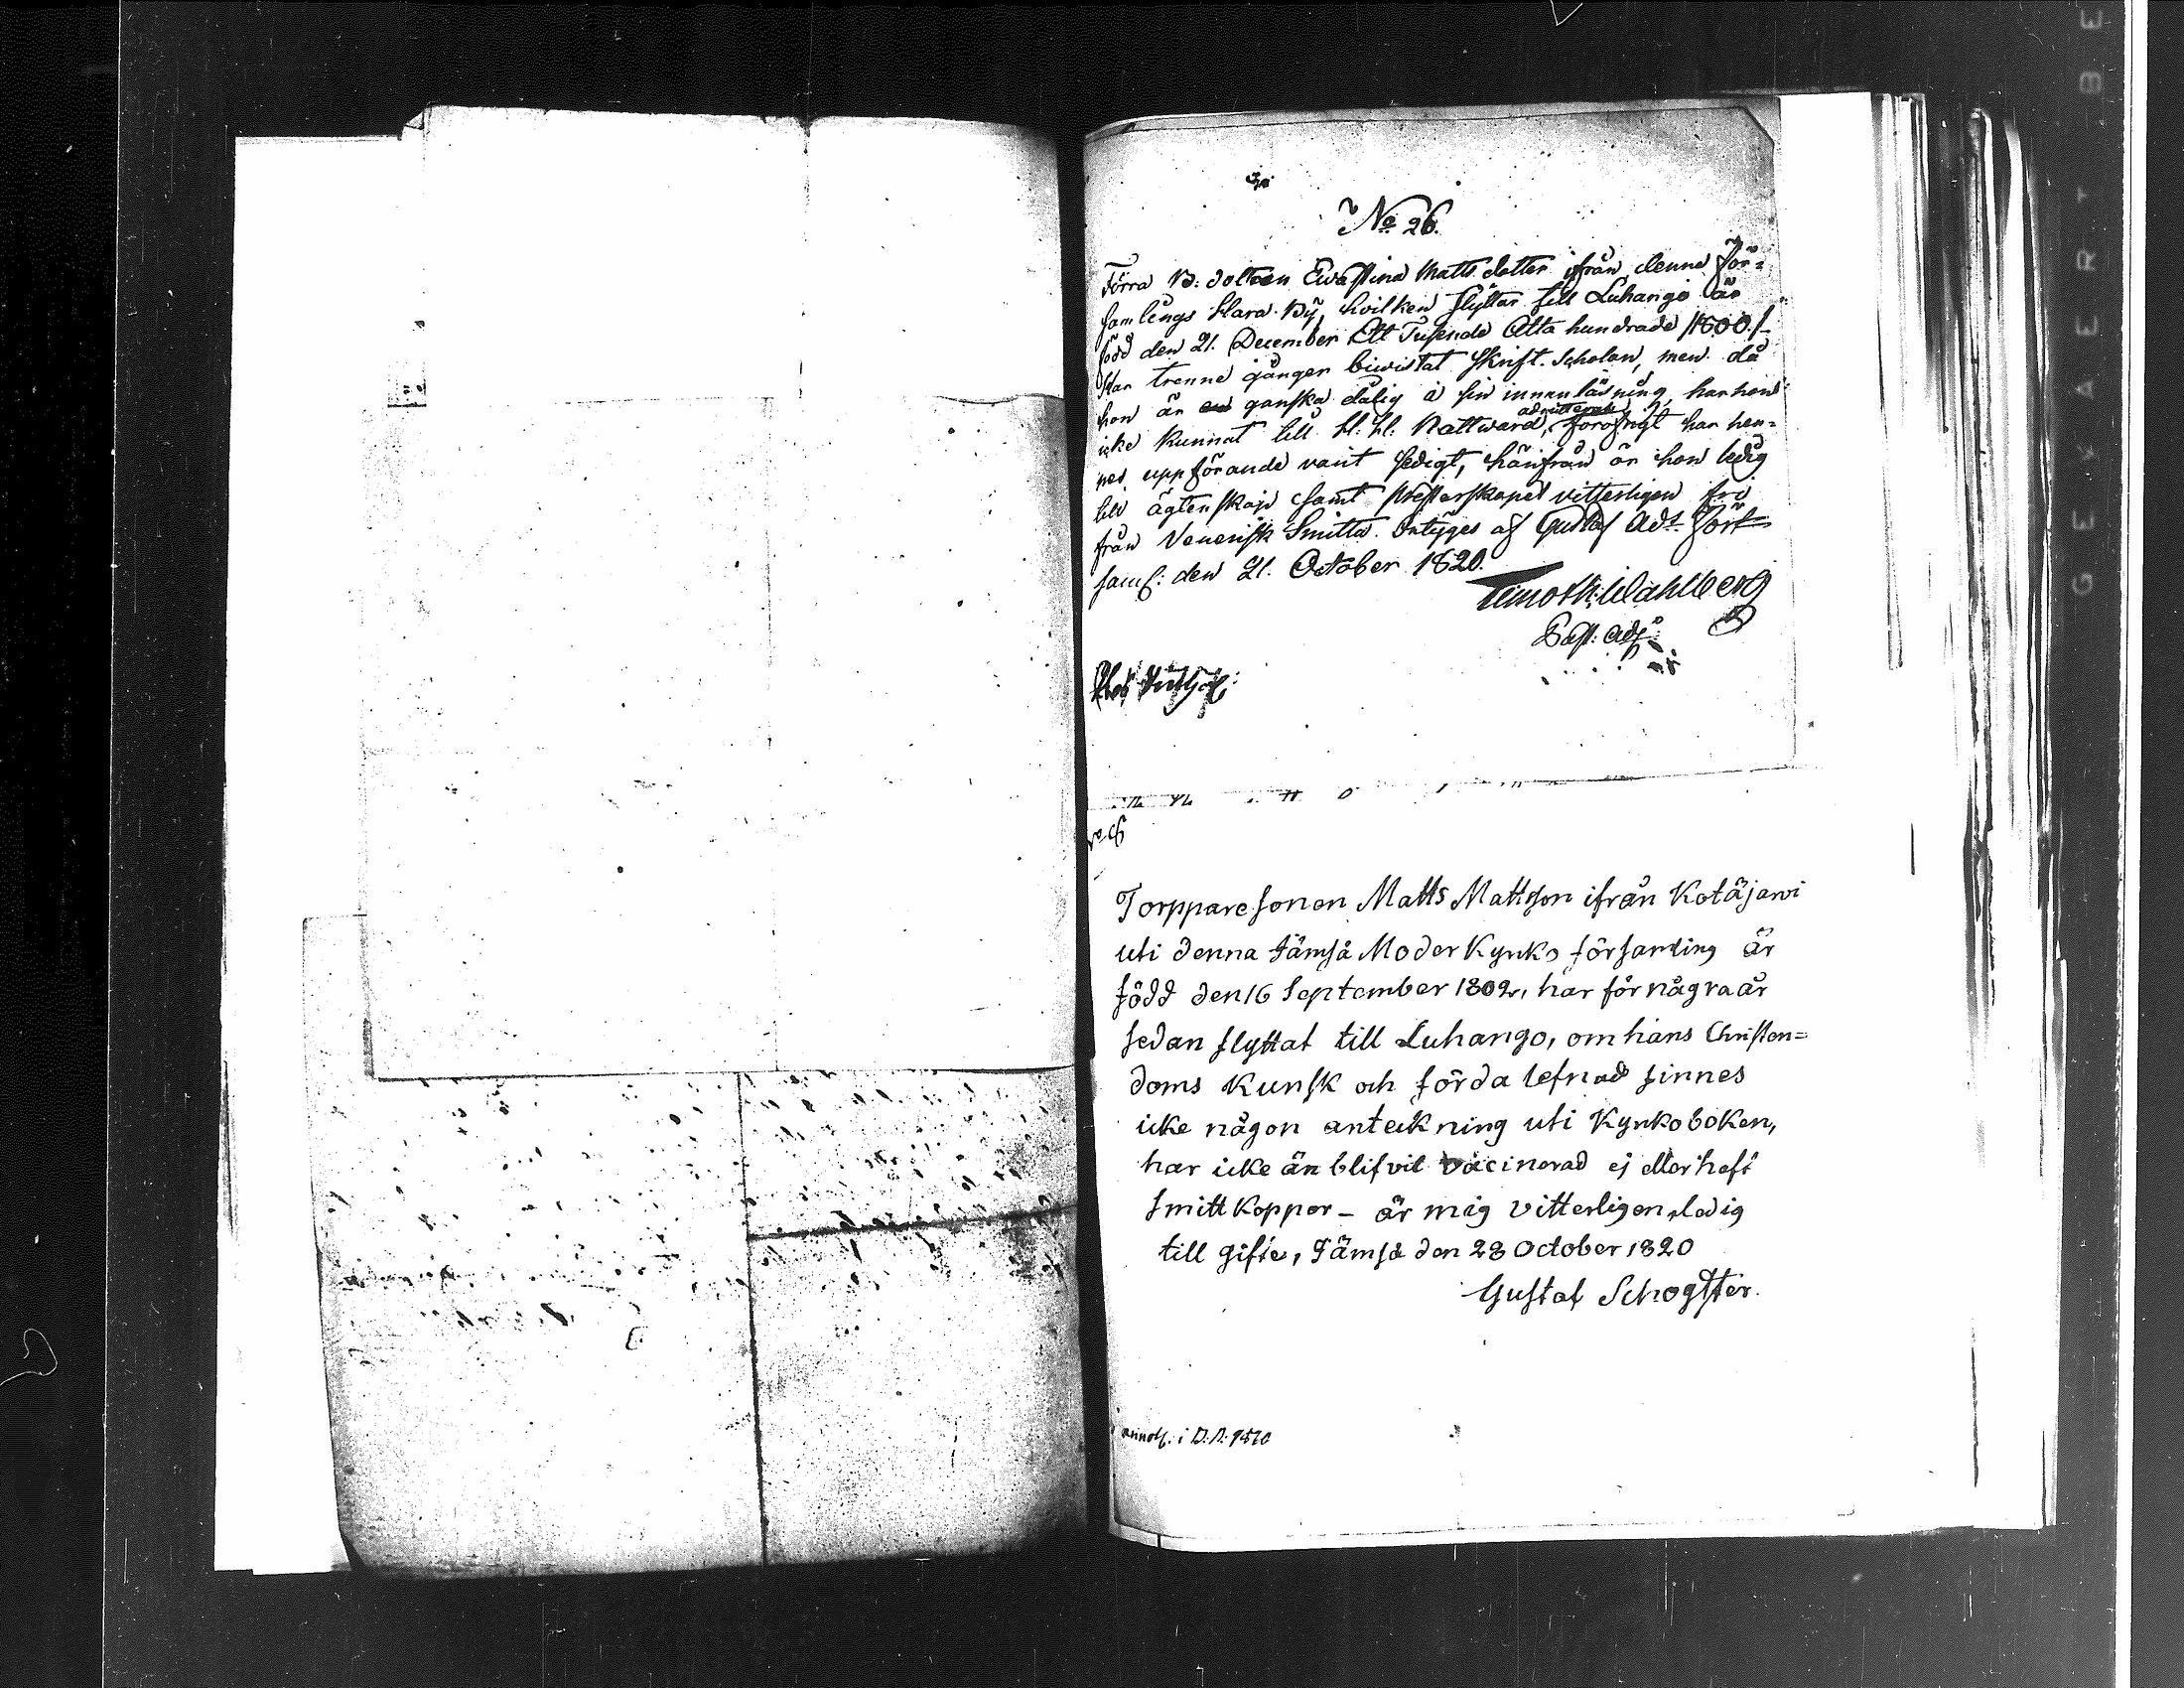 No 26.
Förra B: dottren Ewastina Matts dotter ifrån denna För=
samlings Hara By, hvilken flyttar till Luhango är
född den 21. December Ett Tusende Åtta hundrade /1800./
Har trenne gånger biwistat Skrift-Scholan, men då
hon är ganska dålig i sin innanläsning, har hon
icke kunnat till H: H: Nattward admitteras, förofrigt har hen=
nes uppförande varit sedigt, härifrån är hon ledig
till ägtenskap samt Presterskapet vitterligen fri
från Venerisk Smitta. Intyges af Gustaf Ads För=
saml: den 21. October 1820.
Timoth: Wahlberg
Past: Adj:
Torppare sonen Matts Mattsson ifrån Kotäjarvi
uti denna Jämsä Moder Kyrko församling är
född den 16 September 1802, har för några år
sedan flyttat till Luhango, om hans Christen=
doms Kunsk och förda lefnad finnes
icke någon anteckning uti Kyrkoboken,
har icke än blifvit vacinerad ej eller haft
Smitt Koppor - är mig vitterligen ledig
till gifte, Jämsä den 28 October 1820
Gustaf Schogster.
annot: i D: B: 1820
GEVAERT BE